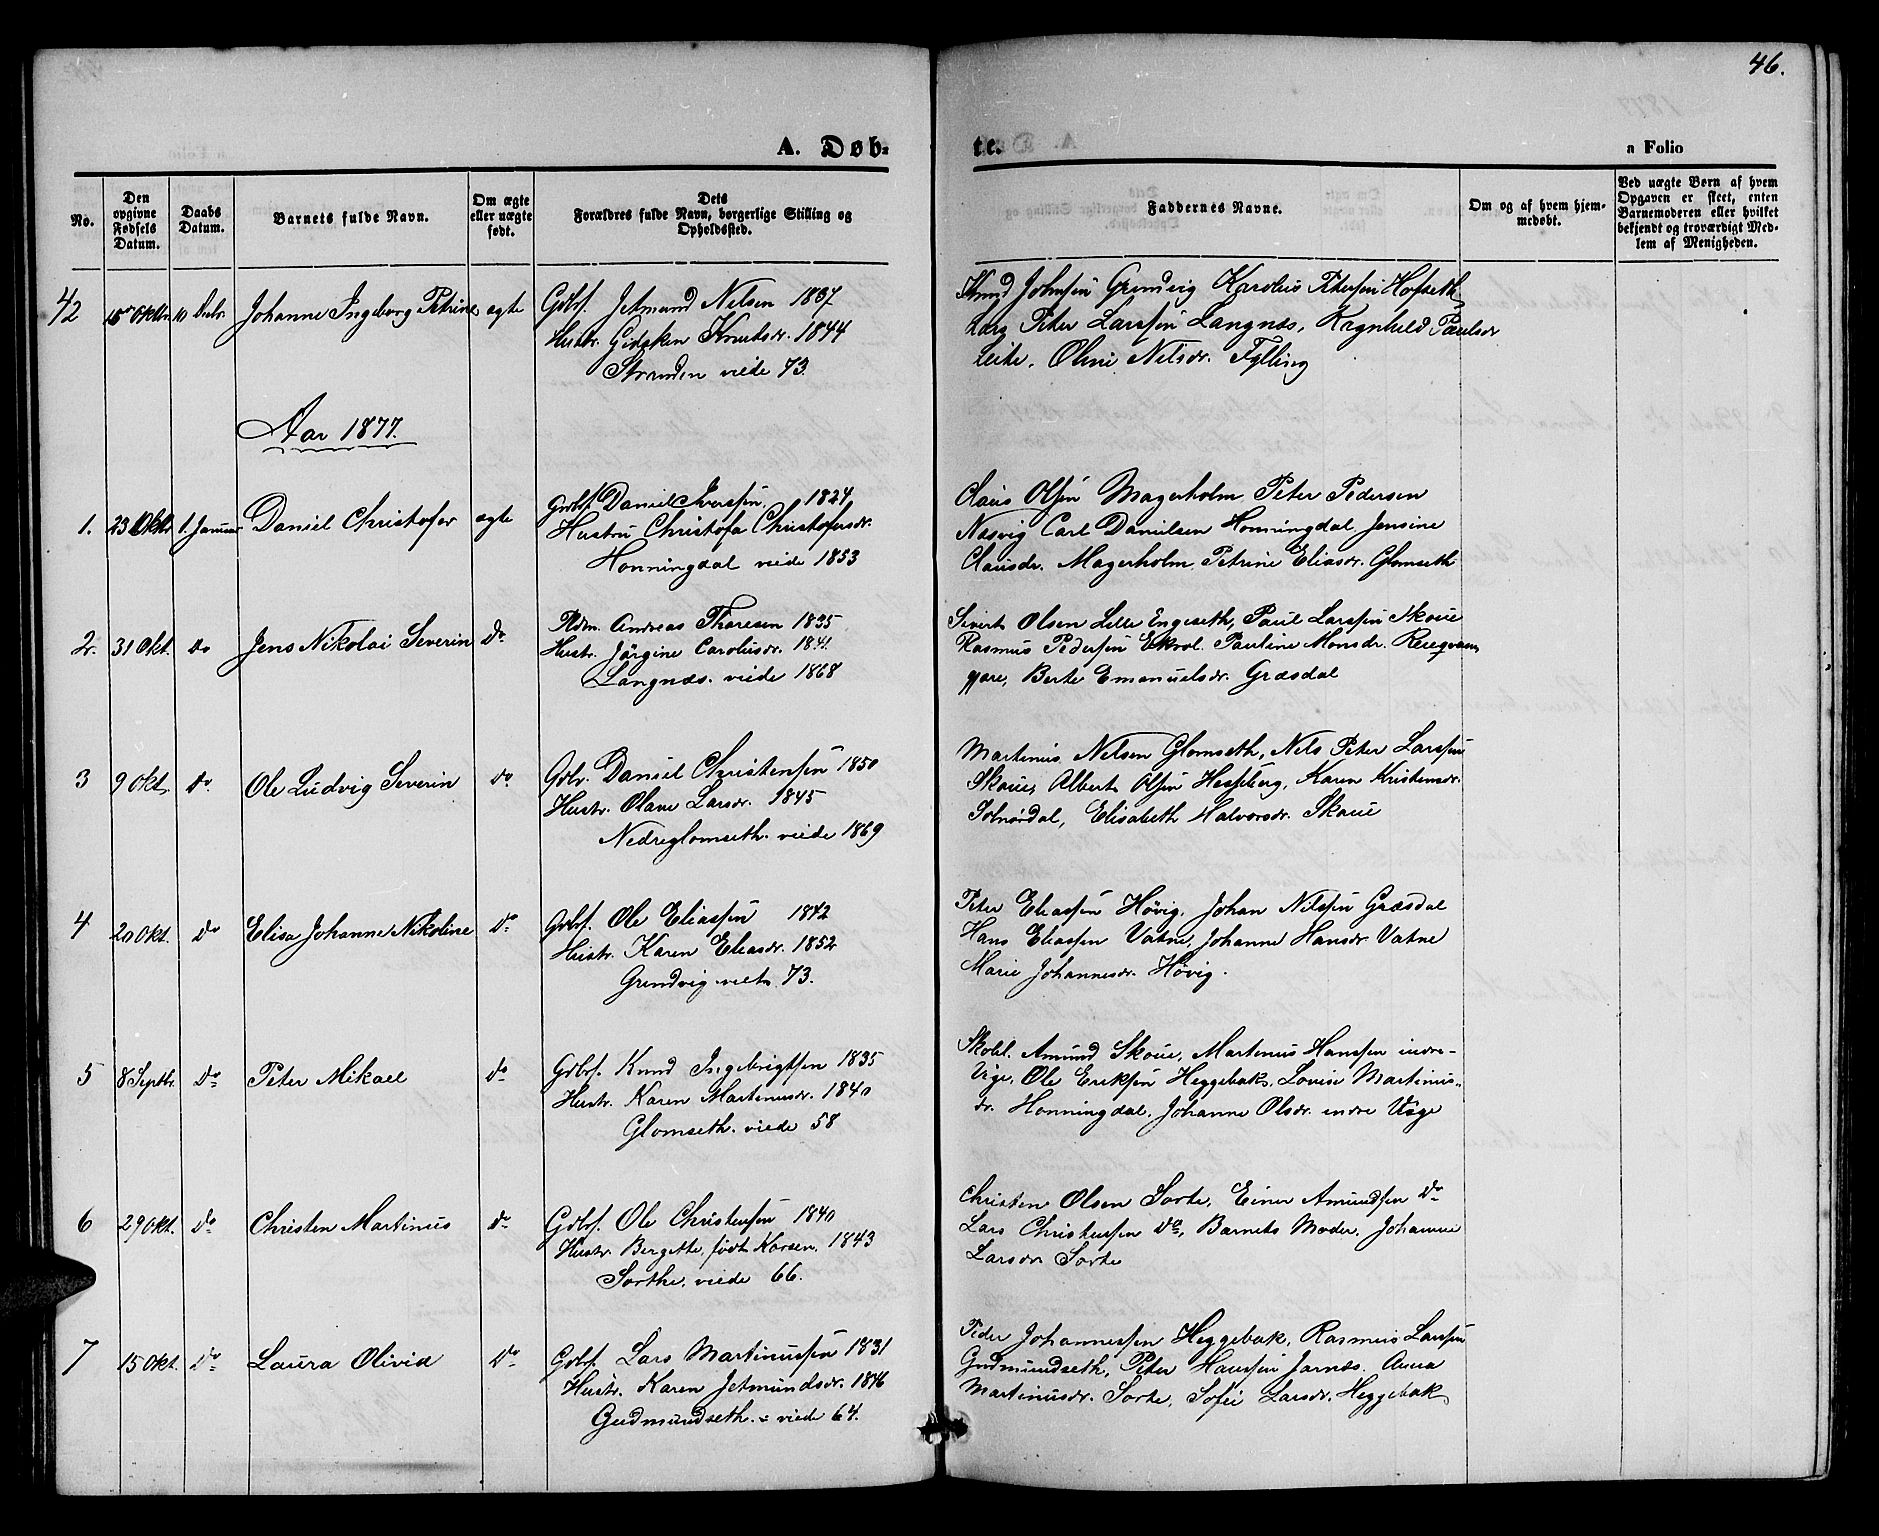 46.
A. Døb-
te.
a Folio
No.
Den opgivne Fødsels Datum.
Daabs Datum.
Barnets fulde Navn.
Om ægte eller uægte født.
Dets Forældres fulde Navn, borgerlige Stilling og Opholdssted.
Faddernes Navne.
Om og af hvem hjem-medøbt.
Ved uægte Børn af hvem Opgaven er skeet, enten Barnemoderen eller hvilket bekjendt og troværdigt Med-lem af Menigheden.
42 Oktbr. 10 Decbr. Johanne Ingeborg Petrine ægte
Gdbr. Jetmund Nilsen 1837
Hustr. Gidsken Knutsdr. 1844
Stranden viede 73.
Knud Johnsen Grindvig Karolus Petersen Hofseth
Lars Peter Larssen Langnæs, Ragnhild Paulsdr
Leite. Oline Nilsdr. Fylling
Aar 1877.
1. 23 Okt. 1. Januar Daniel Christofer ægte
Gdbr. Daniel Iverssen 1824
Hustru Christofa Christofersdr.
Honningdal viede 1853
Claus Olsen Magerholm Peter Pedersen
Næsvig Carl Danielsen Honningdal Jensine
Clausdr. Magerholm Petrine Eliasdr. Glomseth
2. 31 Okt. do Jens Nikolai Severin do
Pldm. Andreas Thoresen 1835
Hustr. Jørgine Carolusdr. 1841
Langnæs. viede 1868
Sivert Olsen Lille Engeseth, Paul Larssen Skoue
Rasmus Pedersen Ekrol. Pauline Monsdr.
gjære, Berte Emanuelsdr. Græsdal
3 9 Okt. do Ole Ludvig Severin do
Gdbr. Daniel Christensen 1850
Hustr. Olave Larsdr. 1845
Nedreglomseth. viede 1869
Martinus Nilsen Glomseth, Nils Peter Larssen
Skoue, Albert Olsen Hessberg, Karen Kristensdr.
Solnørdal, Elisabeth Halvorsdr. Skoue
4 20 Okt. do Elisa Johanne Nikoline do
Gdbr. Ole Eliassen 1842
Hustr. Karen Eliasdr. 1852
Grindvig viet 73.
Peter Eliassen Høvig, Johan Nilssen Græsdal
Hans Eliassen Vatne, Johanne Hansdr. Vatne
Marie Johannesdr. Høvig.
5 8 Septbr. do Peter Mikael do
Gdbr. Knud Ingebrigtsen 1835
Hustr. Karen Martinusdr. 1840
Glomseth. viede 58
Skoll. Amund Skoue, Martinus Hanssen indre-
Vige, Ole Eriksen Heggebak, Lovise Martinus-
dr. Honningdal, Johanne Olsdr. indre Vige
6 29 Okt. do Christen Martinus do
Gdbr. Ole Christensen 1840
Hustr. Bergitte, født Korsen. 1843
Sorthe. viede 66.
Christen Olsen Sorte, Einer Amundsen do
Lars Christensen do, Barnets Moder, Johanne
Larsdr. Sorte
7 15 Okt. do Laura Olivid do
Gdbr. Lars Martinussen 1831
Hustr. Karen Jetmundsdr. 1846
Gudmundseth. viede 64.
Peder Johannessen Heggebak, Rasmus Larssen
Gudmundseth, Peter Hanssen Jarnæs, Anna
Martinusdr. Sorte, Sofie Larsdr. Heggebak